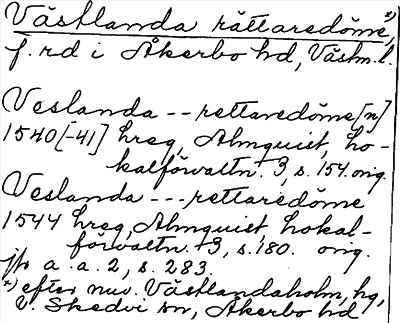 Västlanda rättaredöme,*)
f. rd i Åkerbo hd, Västm. l.
Veslanda -- rettaredöme[n]
1540[-41] hreg, Almquist, lo-
kalförvaltn. 3, s. 154. orig.
Veslanda --- rettaredöme
1544 hreg, Almquist lokal-
förvaltn. 3, s. 180. orig.
jfr a. a. 2, s. 283.
*) efter nuv. Västlandaholm, hg,
V. Skedvi sn, Åkerbo hd